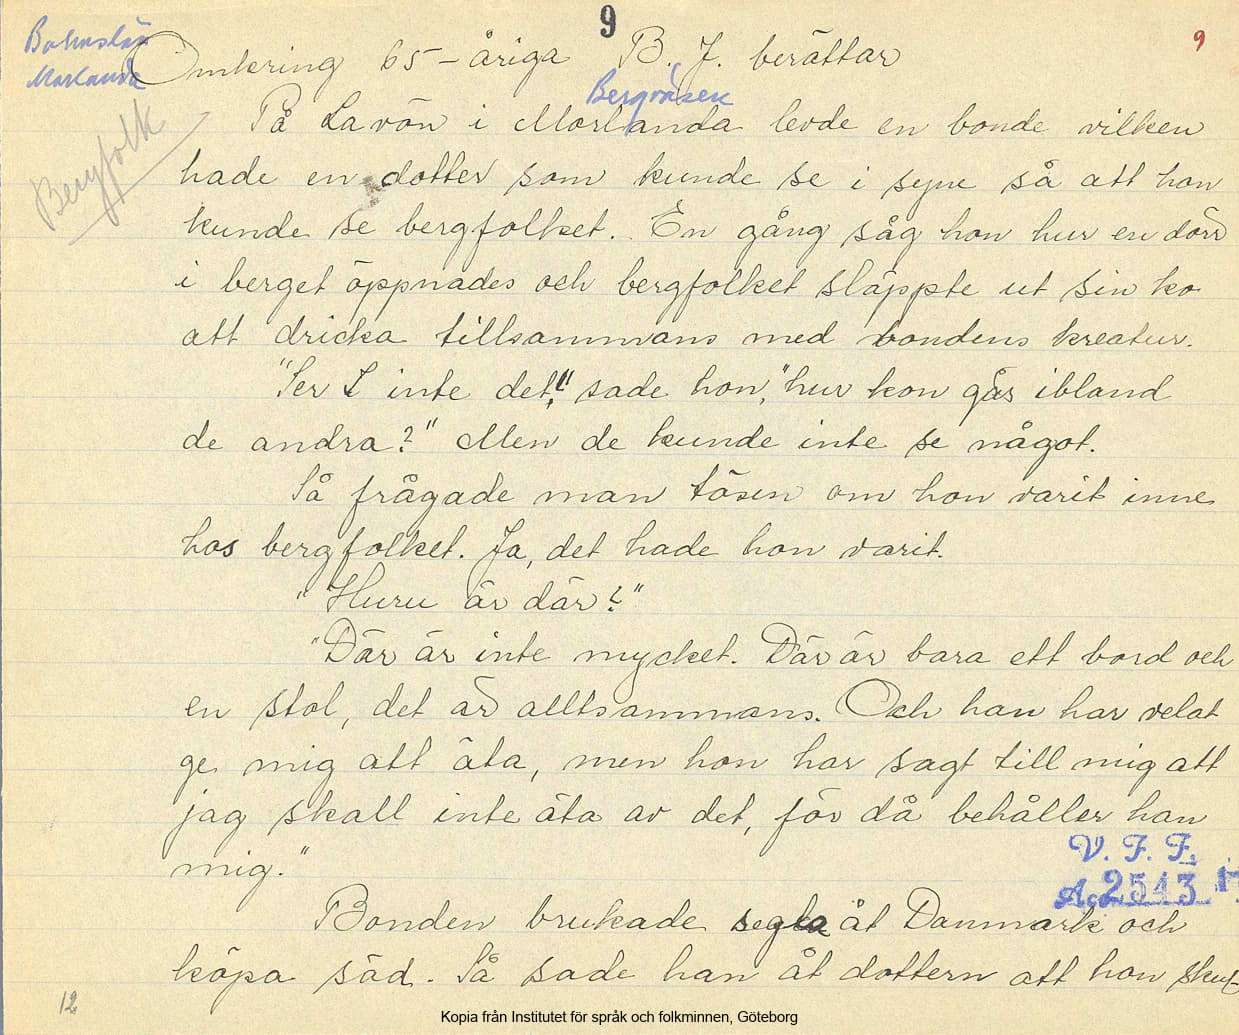 9
9
Bohuslän
Morlanda
Omkring 65-åriga B. J. berättar
Bergväsen
Bergfolk
På Lavön i Morlanda levde en bonde vilken
hade en dotter som kunde se i syne så att hon
kunde se bergfolket. En gång såg hon hur en dörr
i berget öppnades och bergfolket släppte ut sin ko
att dricka tillsammans med bondens kreatur.
"Ser I inte det," sade hon, "hur kon går ibland
de andra?" Men de kunde inte se något.
Så frågade man tösen om hon varit inne
hos bergfolket. Ja, det hade hon varit.
"Huru är där?"
"Där är inte mycket. Där är bara ett bord och
en stol, det är alltsammans. Och han har velat
ge mig att äta, men hon har sagt till mig att
jag skall inte äta av det, för då behåller han
mig."
V. F. F.
Acc. 2543
Bonden brukade segla åt Danmark och
köpa säd. Så sade han åt dottern att hon skul-
12
Kopia från Institutet för språk och folkminnen, Göteborg